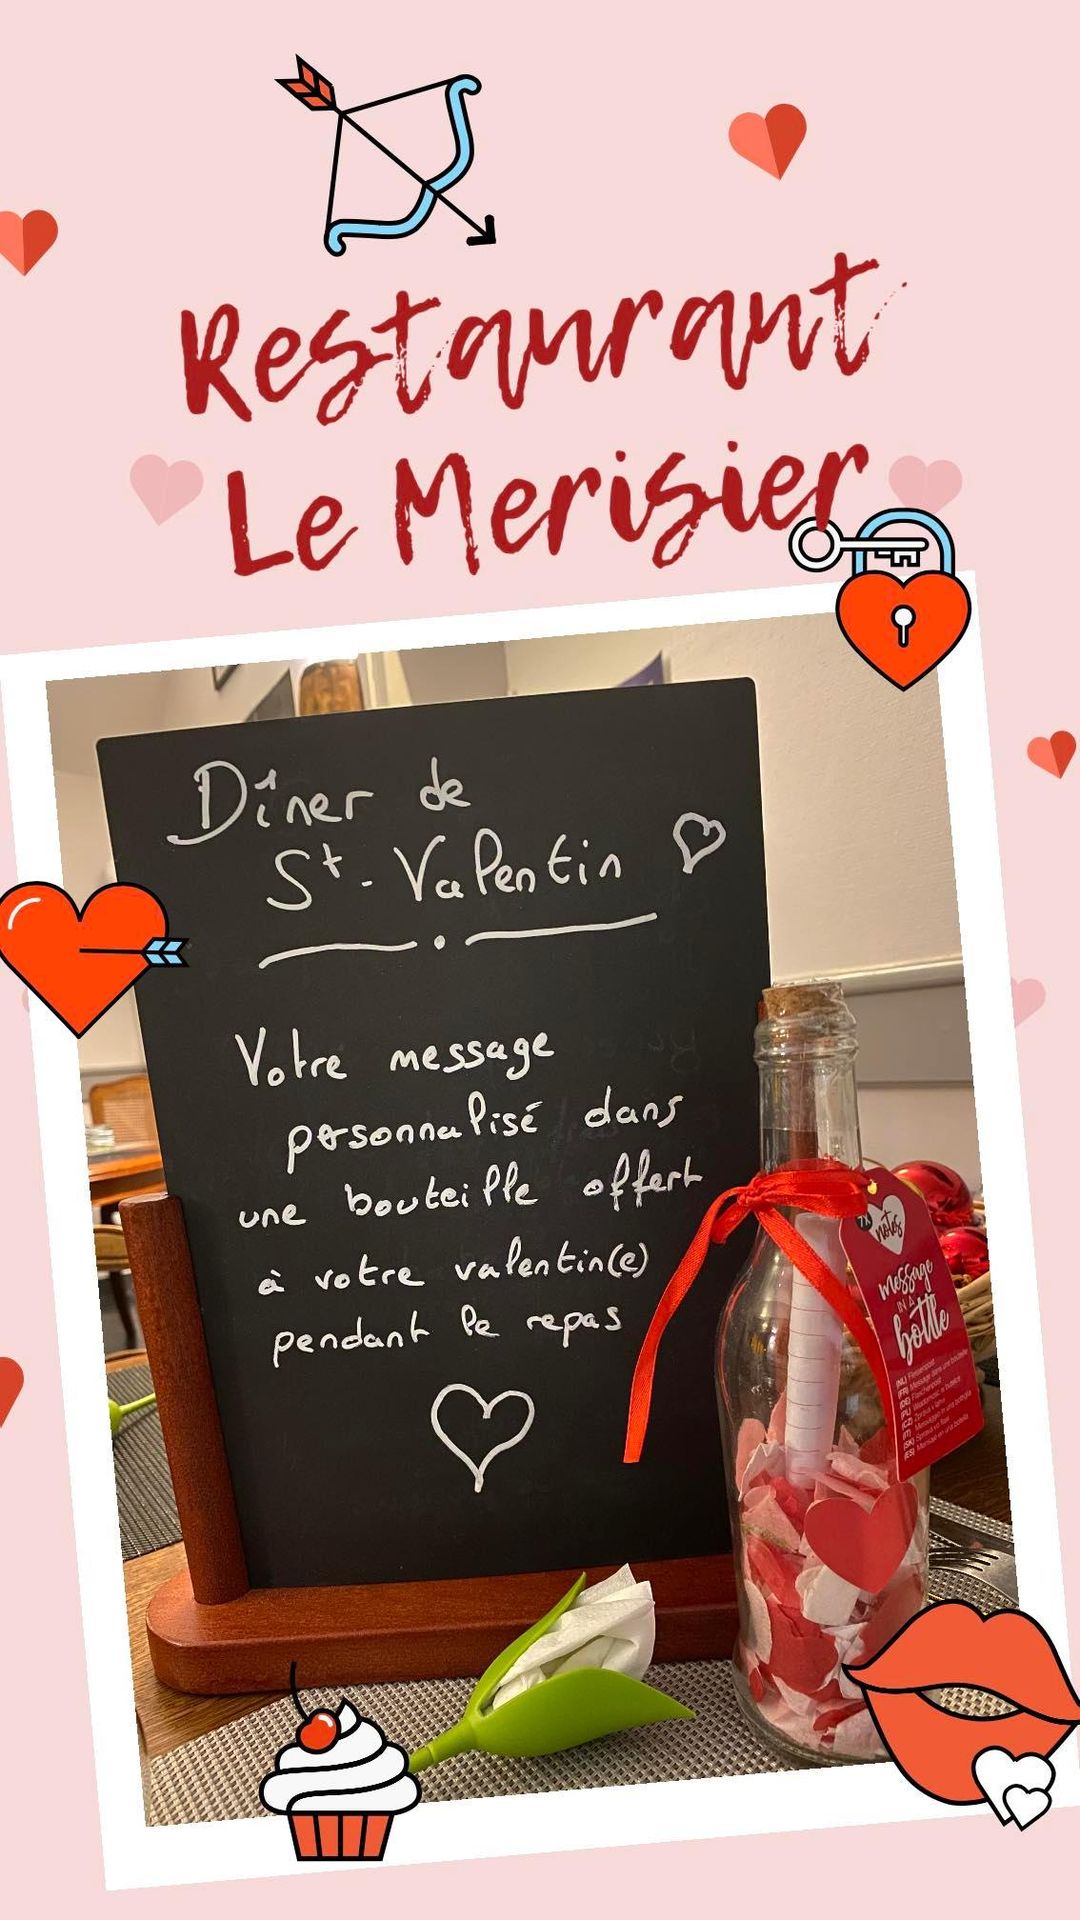 Restaurant
Le Merisier
Dîner de
St-Valentin
Votre message
personnalisé dans
une bouteille offert
à votre valentin(e)
pendant le repas
7x
notes
message
IN A
bottle